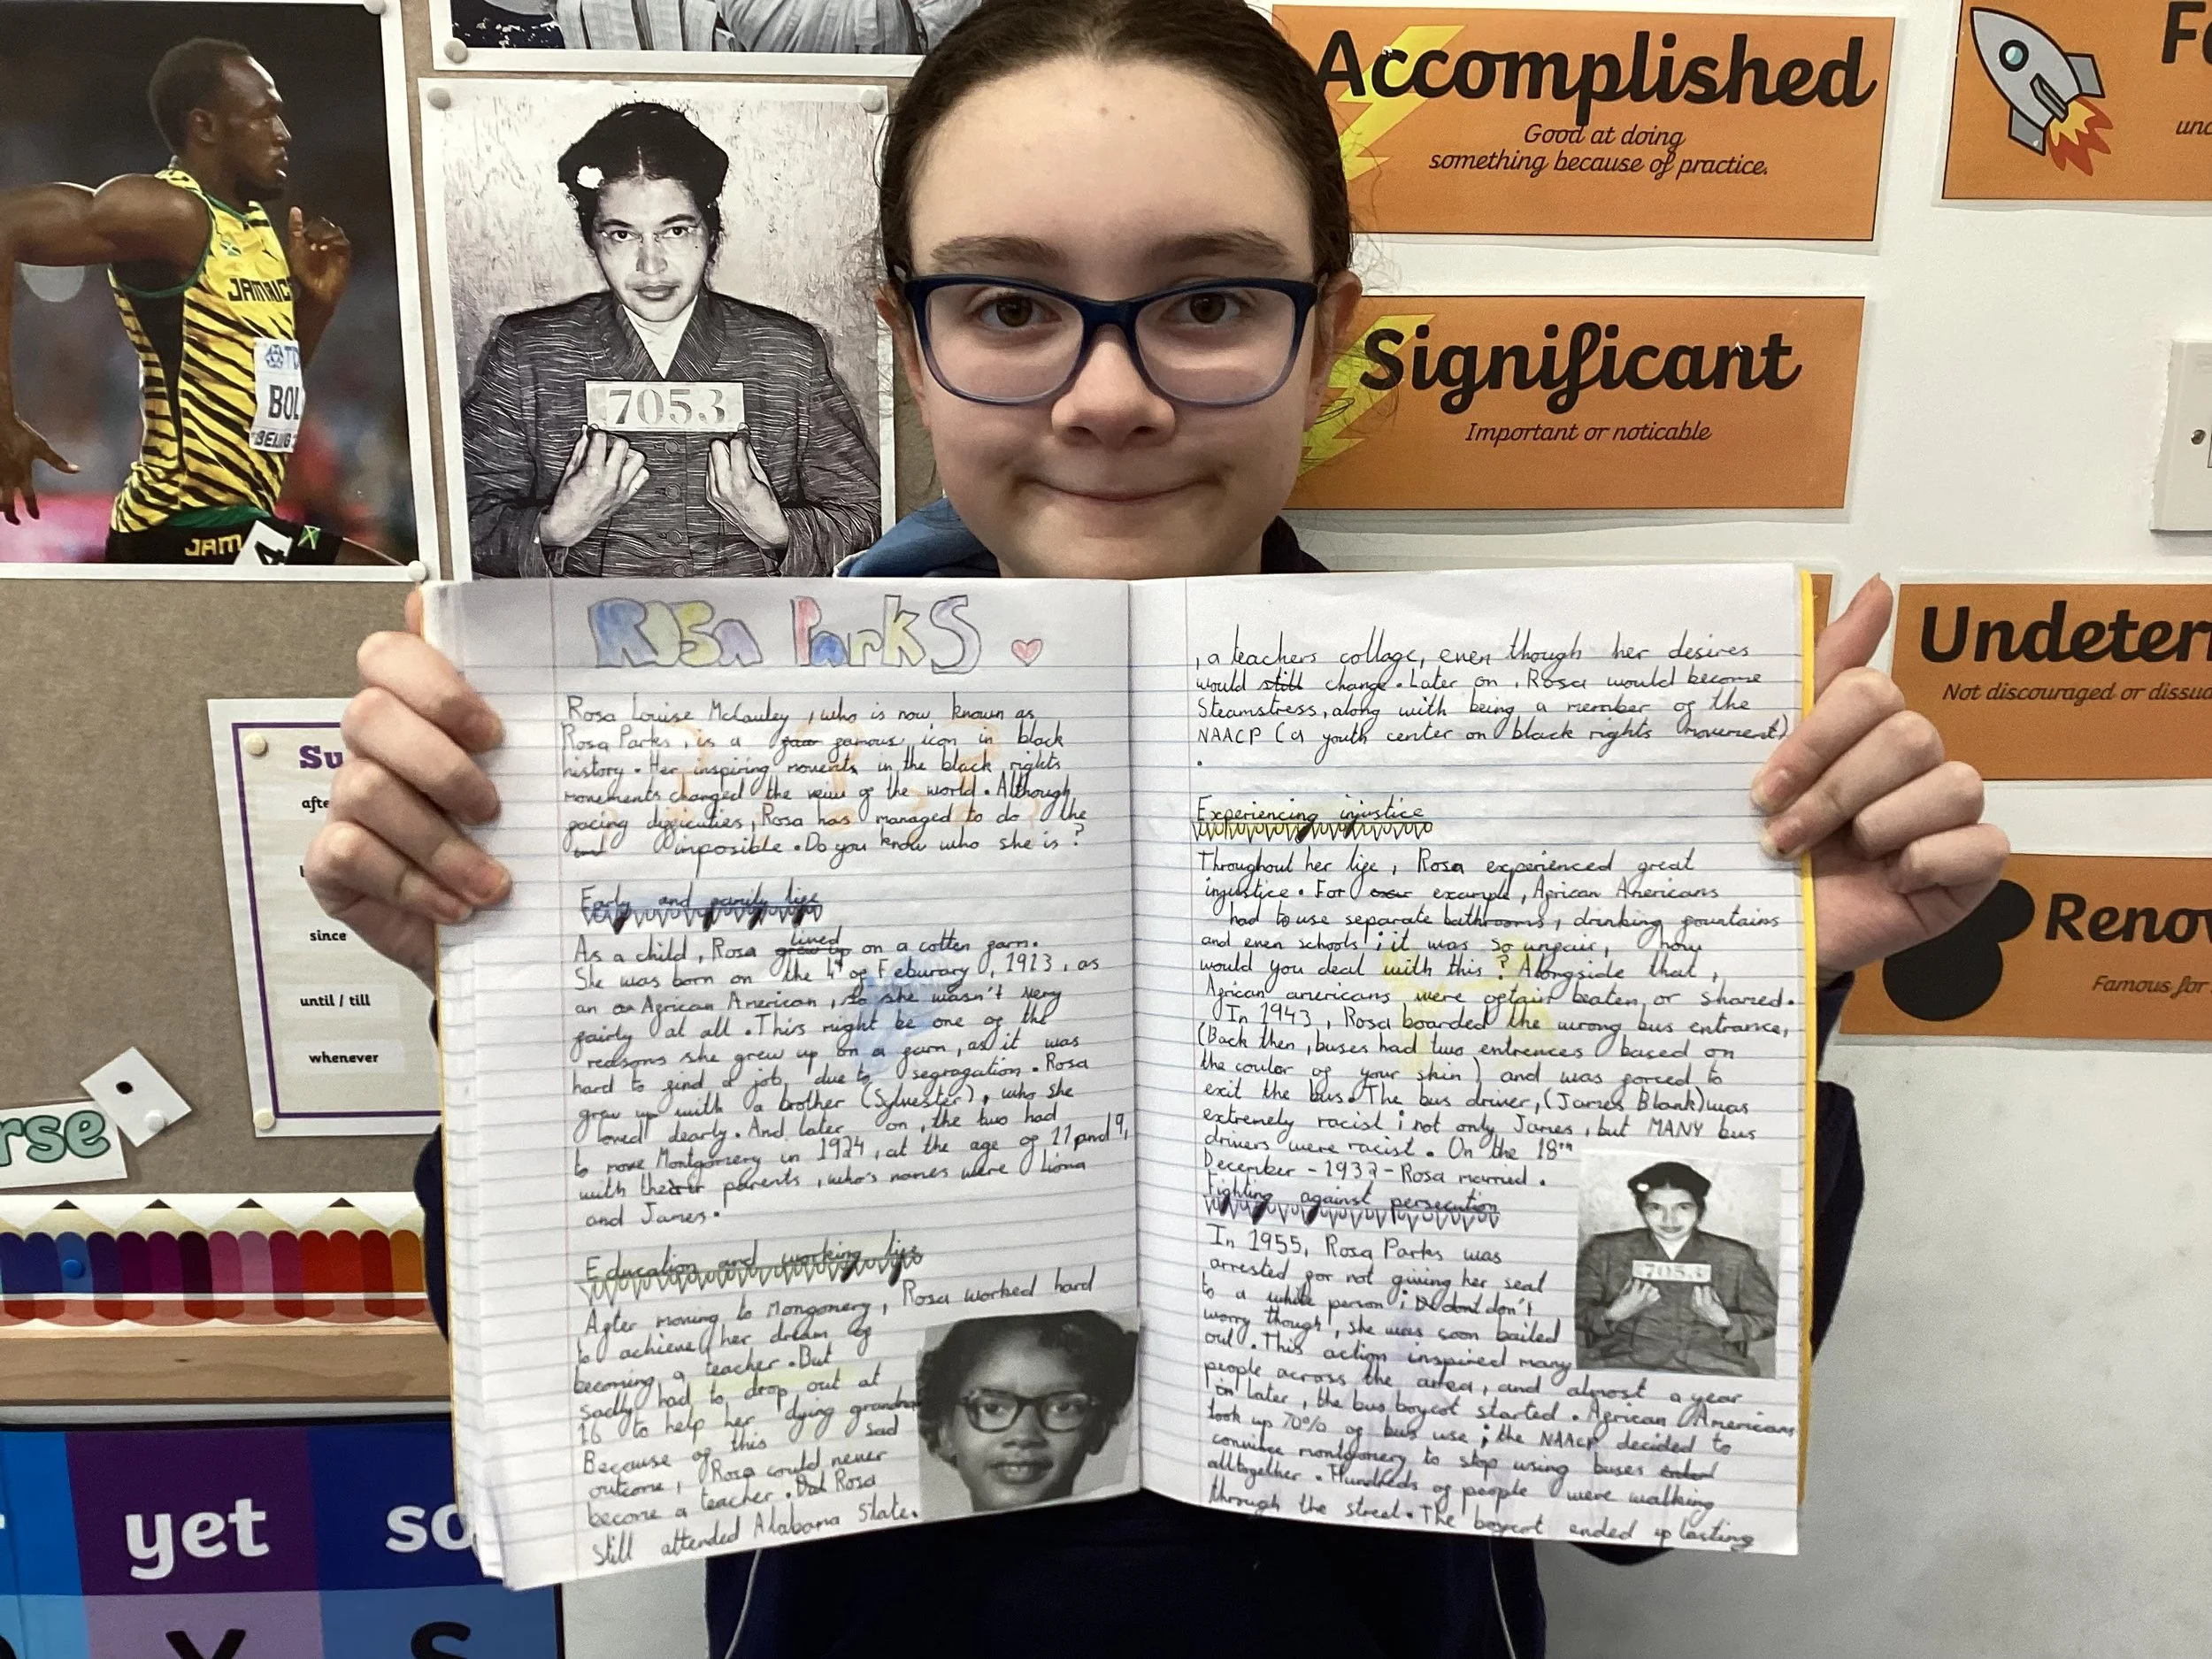 JAMAIC
TD
BOL
BEIJING
JAM
4
7053
Accomplished
Good at doing
something because of practice.
Significant
Important or noticable
Undeter
Not discouraged or dissua
Renow
Famous for
Su
afte
since
until / till
whenever
rse
yet
so
Rosa Parks
Rosa Louise McCauley , who is now known as
Rosa Parks , is a famous icon in black
history . Her inspiring movements in the black rights
movements changed the veiw of the world . Although
facing difficulties , Rosa has managed to do the
imposible . Do you know who she is ?
Early and family life
As a child , Rosa lived on a cotten farm .
She was born on the 4th of Feburary , 1913 , as
an African American , so she wasn't very
fairly at all . This might be one of the
reasons she grew up on a farm , as it was
hard to find a job due to segragation . Rosa
grew up with a brother (Sylvester) , who she
loved dearly . And later on , the two had
to move Montgomery in 1924 , at the age of 11 and 9,
with their parents , who's names were Liona
and James .
Education and working life
After moving to Mongomery , Rosa worked hard
to achieve her dream of
becoming a teacher . But
sadly had to drop out at
16 to help her dying grandma
Because of this sad
outcome , Rosa could never
become a teacher . But Rosa
still attended Alabama State .
, a teachers collage , even though her desires
would still change . Later on , Rosa would become
Steamstress , along with being a member of the
NAACP (a youth center on black rights movement)
.
Experiencing injustice
Throughout her life , Rosa experienced great
injustice . For example , African Americans
had to use separate bathrooms , drinking fountains
and even schools ; it was so unfair , how
would you deal with this ? Alongside that ,
African americans were oftain beaten or shared .
In 1943 , Rosa boarded the wrong bus entrance,
(Back then , buses had two entrences based on
the coulor of your skin) and was forced to
exit the bus . The bus driver , (James Blank) was
extremely racist ; not only James , but MANY bus
drivers were racist . On the 18th
December - 1932 - Rosa married .
Fighting against persecution
In 1955 , Rosa Parks was
arrested for not giving her seat
to a white person ; don't
worry though , she was soon bailed
out . This action inspired many
people across the area , and almost a year
later , the bus boycot started . African Americans
took up 70% of bus use ; the NAACP decided to
convince montgomery to stop using buses
alltogether . Hundreds of people were walking
through the street . The boycot ended up lasting
7053